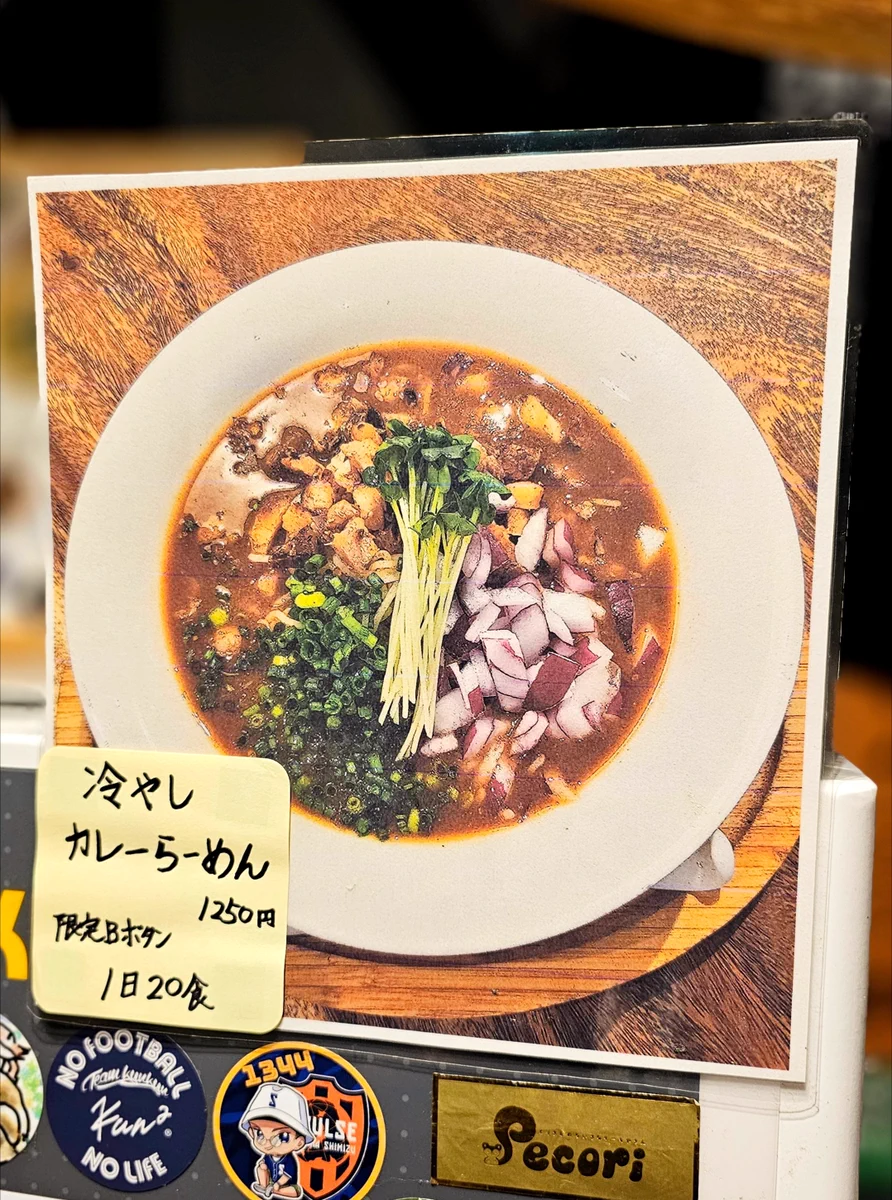 冷やし
カレーらーめん
1250円
限定Bボタン
1日20食
K
NO FOOTBALL
Kun²
NO LIFE
1344
PULSE
SHIMIZU
Pecori